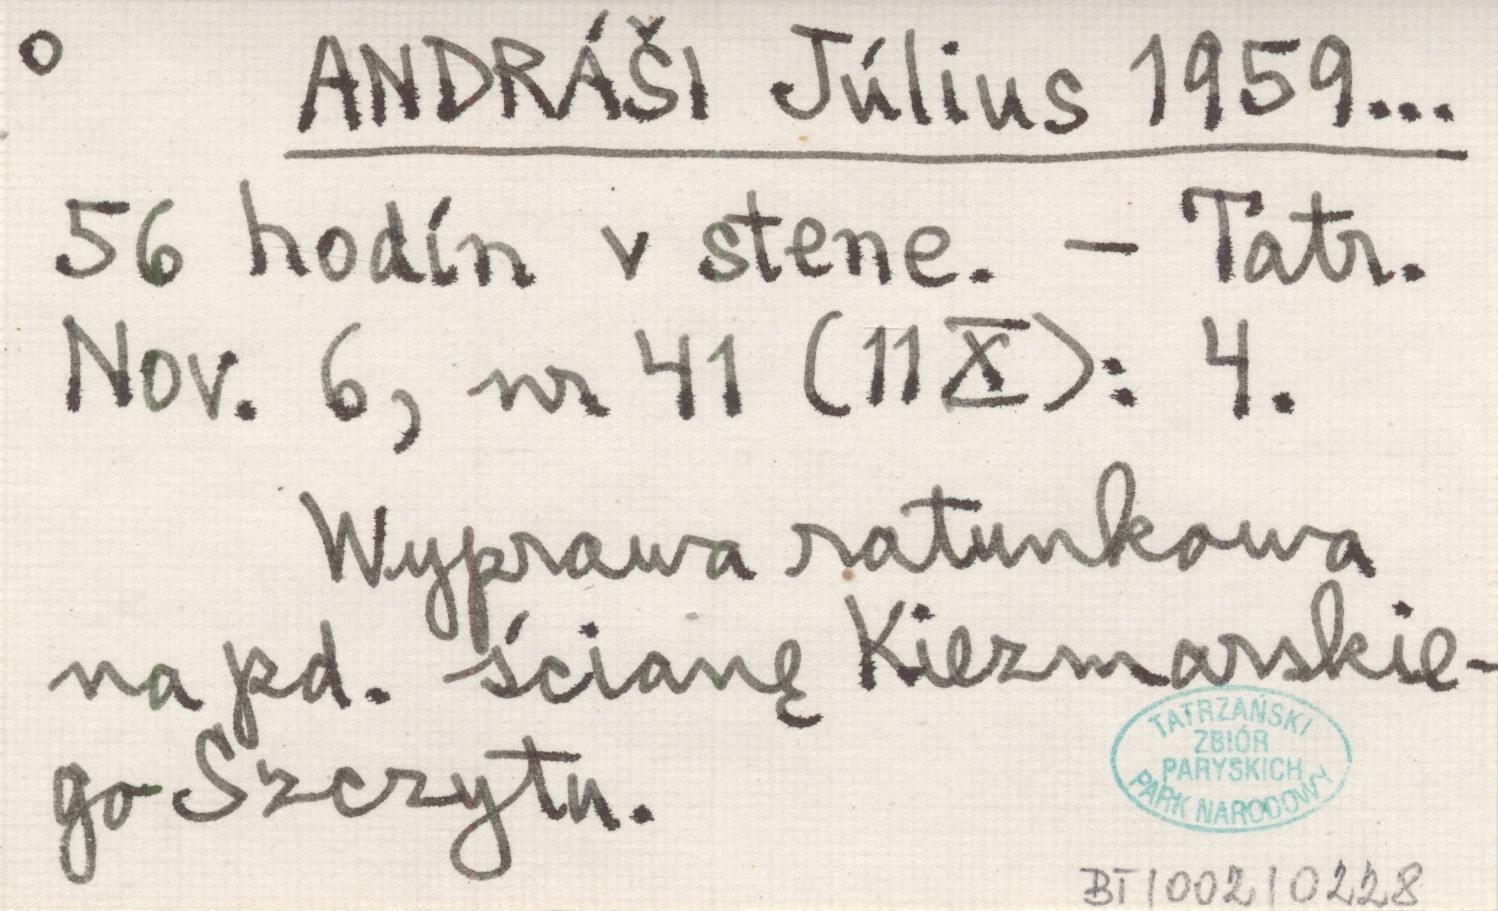 o ANDRÁŠI Július 1959...
56 hodín v stene. – Tatr.
Nov. 6, nr 41 (11 X): 4.
Wyprawa ratunkowa
na pd. ścianę Kiezmarskie-
go Szczytu.
TATRZAŃSKI
ZBIÓR
PARYSKICH
PARK NARODOWY
BT/002/0228